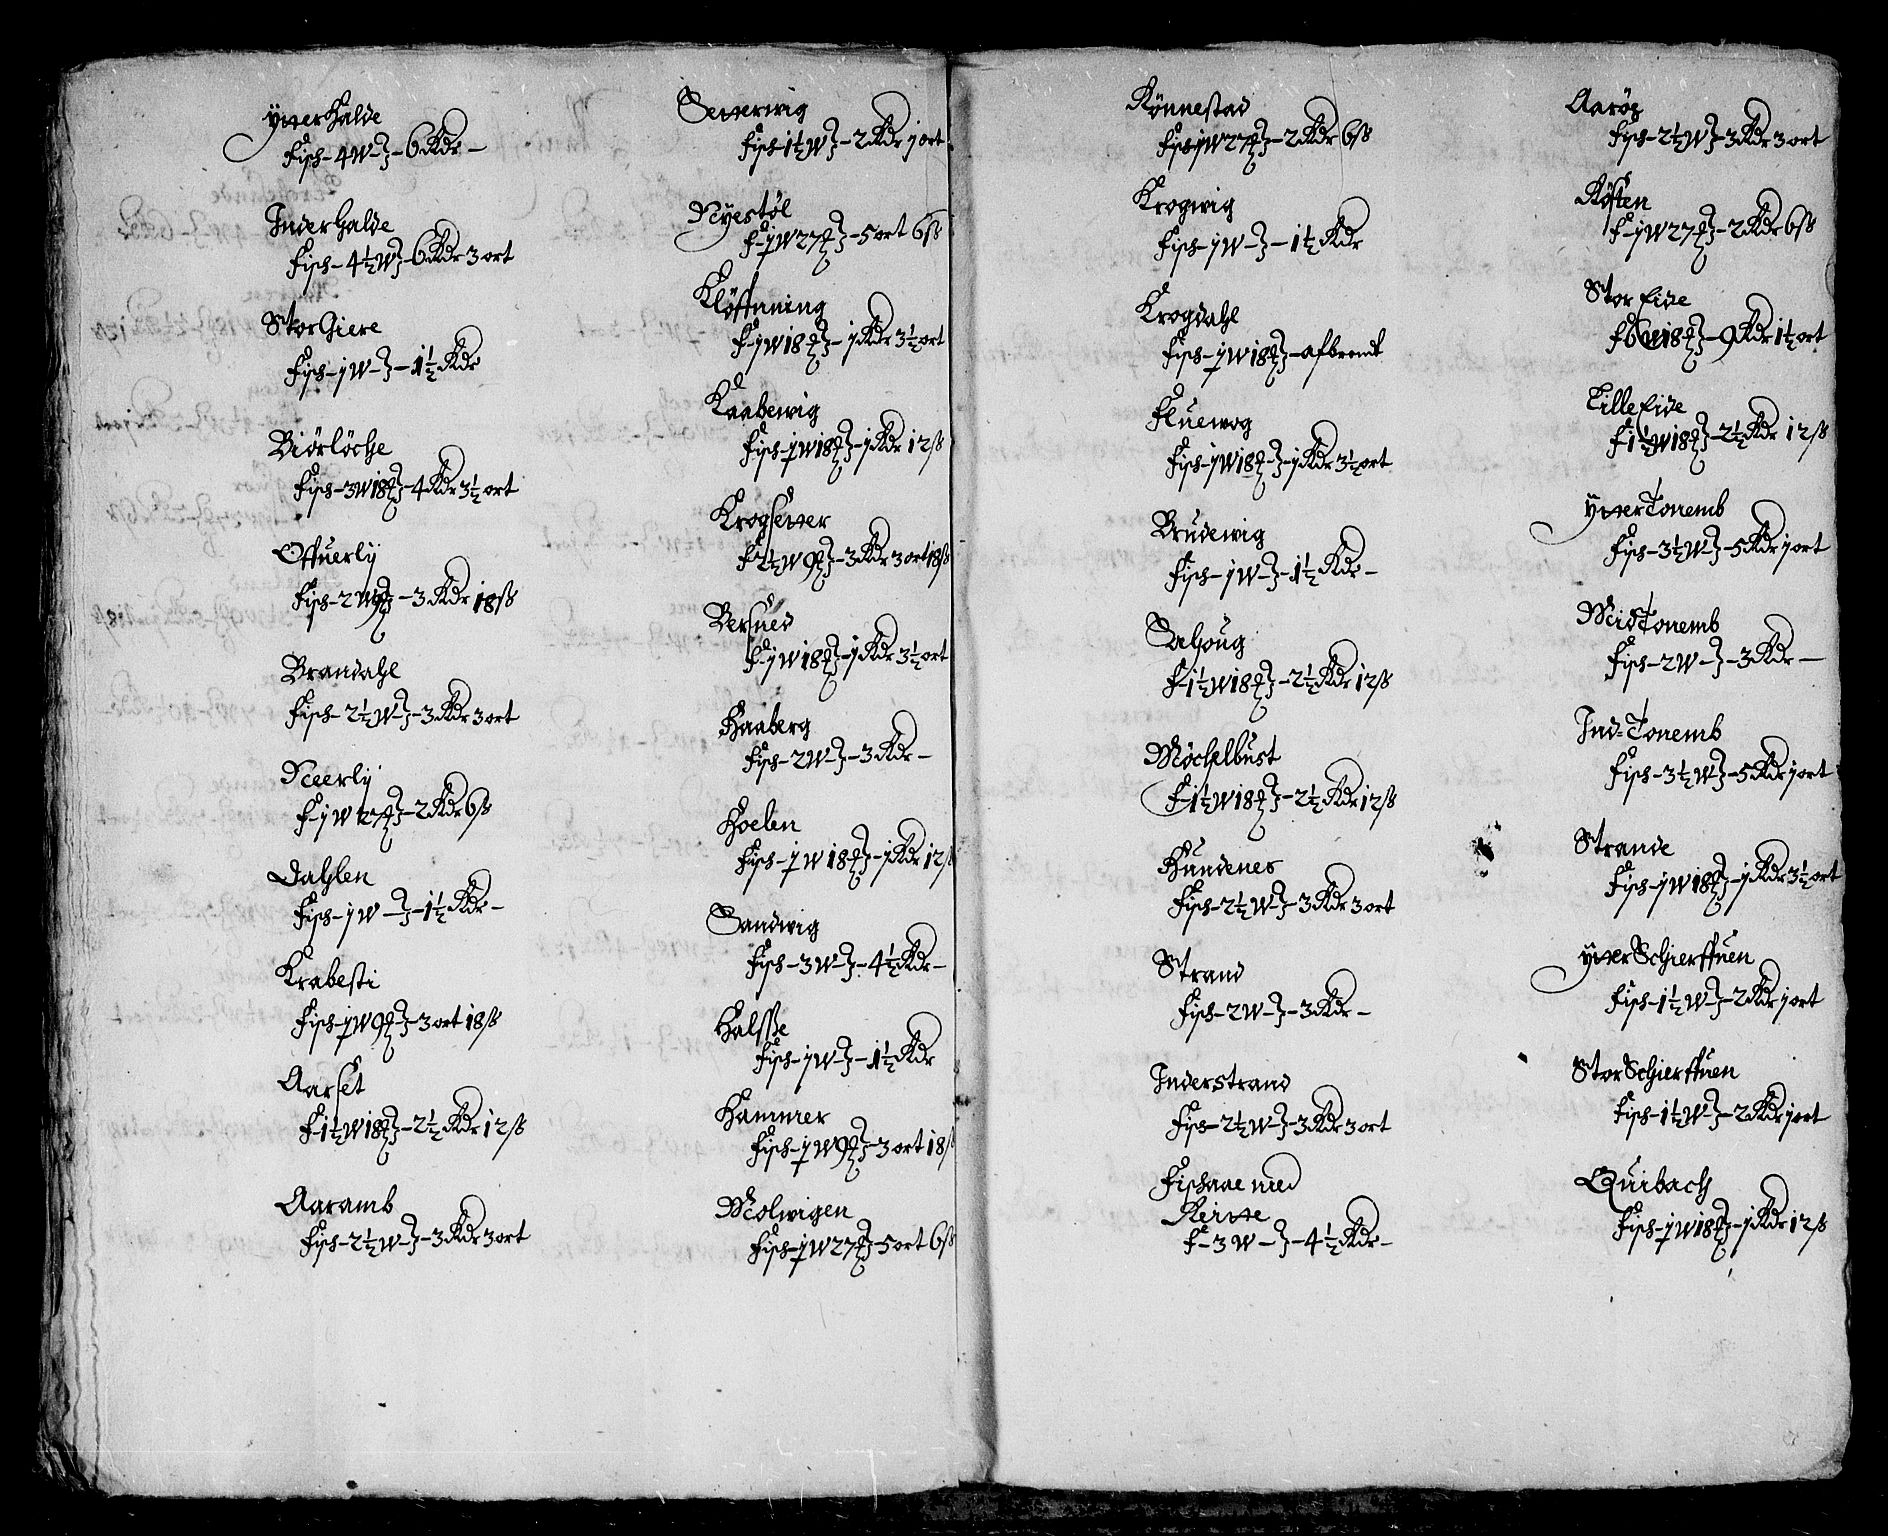 ÿtterhalde
Fisch – 4 W – } – 6 Rdr –
Inderhalde
Fisch – 4½ W } – 6 Rdr 3 ort
Stor Giere
Fisch – j W – } – 1½ Rdr
Biörlöche
Fisch – 3 W 18 ℔ } – 4 Rdr 3½ ort
Offuerlÿ
Fisch – 2 W 9 ℔ } – 3 Rdr 18 ß
Brandahl
Fisch – 2½ W – } – 3 Rdr 3 ort
Neerlÿ
F – j W 27 ℔ } – 2 Rdr 6 ß
Dahlen
Fisch – j W – } – 1½ Rdr –
Krabesti
Fisch – j W 9 ℔ } – 3 ort 18 ß
Aarset
F – 1½ W 18 ℔ } – 2½ Rdr 12 ß
Aaramb
Fisch – 2½ W – } – 3 Rdr 3 ort
Setterwig
Fisch – 1½ W } – 2 Rdr j ort
Nÿestöl
F – j W 27 ℔ } – 5 ort 6 ß
Klöffnning
F – j W 18 ℔ } – j Rdr 3½ ort
Kaabewig
Fisch – j W 18 ℔ } – j Rdr 12 ß
Krogsetter
F 2½ W 9 ℔ } – 3 Rdr 3 ort 18 ß
Bersued
F – j W 18 ℔ } – j Rdr 3½ ort
Haaberg
Fisch – 2 W – } – 3 Rdr –
Hoelen
Fisch – j W 18 ℔ } – j Rdr 12 ß
Sandwig
Fisch – 3 W – } – 4½ Rdr –
Halsße
Fisch – j W – } – 1½ Rdr
Hammer
Fisch – j W 9 ℔ } – 3 ort 18 ß
Molwigen
Fisch – j W 27 ℔ } – 5 ort 6 ß
Rönnestad
Fisch j W 27 ℔ } – 2 Rdr 6 ß
Krogwig
Fisch – j W – } – 1½ Rdr
Krogdahl
Fisch – j W 18 ℔ } – afbrendt
Fluewog
Fisch – j W 18 ℔ – } – j Rdr 3½ ort
Brudewig
Fisch – j W – } – 1½ Rdr –
Salhoug
F – 1½ W 18 ℔ } – 2½ Rdr 12 ß
Möchelbust
F – 1½ W 18 ℔ } – 2½ Rdr 12 ß
Hundenes
Fisch – 2½ W – } – 3 Rdr 3 ort
Strand
Fisch – 2 W – } – 3 Rdr –
Inderstrand
Fisch – 2½ W – } – 3 Rdr 3 ort
Fischaae med
F – 3 W – } – 4½ Rdr –
Aaröe
Fisch – 2½ W } – 3 Rdr 3 ort
Röften
F – j W 27 ℔ } – 2 Rdr 6 ß
Stor Eide
F 6 W 18 ℔ } – 9 Rdr 1½ ort
Lille Eide
F 1½ W 18 ℔ } – 2½ Rdr 12 ß
ÿtter Tonemb
Fisch – 3½ W – } – 5 Rdr j ort
Mid Tonemb
Fisch – 2 W – } – 3 Rdr –
Ind = Tonemb
Fisch – 3½ W – } – 5 Rdr j ort
Strande
Fisch – j W 18 ℔ } – j Rdr 3½ ort
ÿtter Schierffuen
Fisch – 1½ W – } – 2 Rdr j ort
Stor Schierffuen
Fisch – 1½ W – } – 2 Rdr j ort
Quibach
Fisch – j W 18 ℔ } – j Rdr 12 ß